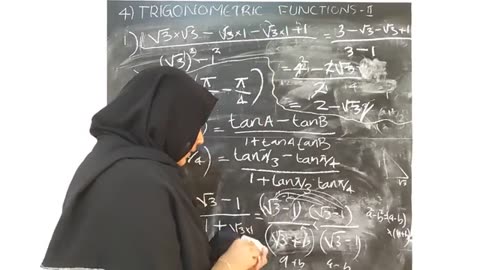 4) TRIGONOMETRIC FUNCTIONS-II
1) √3×√3 - √3×1 - √3×1 + 1 = 3-√3-√3+1
(√3)² - 1² 3-1
π/4) = 4 - 2√3
2
= 2-√3
= tanA - tanB
1+tanA tanB
4) = tanπ/3 - tanπ/4
1 + tanπ/3 . tanπ/4
√3 - 1 = (√3-1) (√3-1)
1+√3×1 (√3+1) (√3-1)
a+b a-b